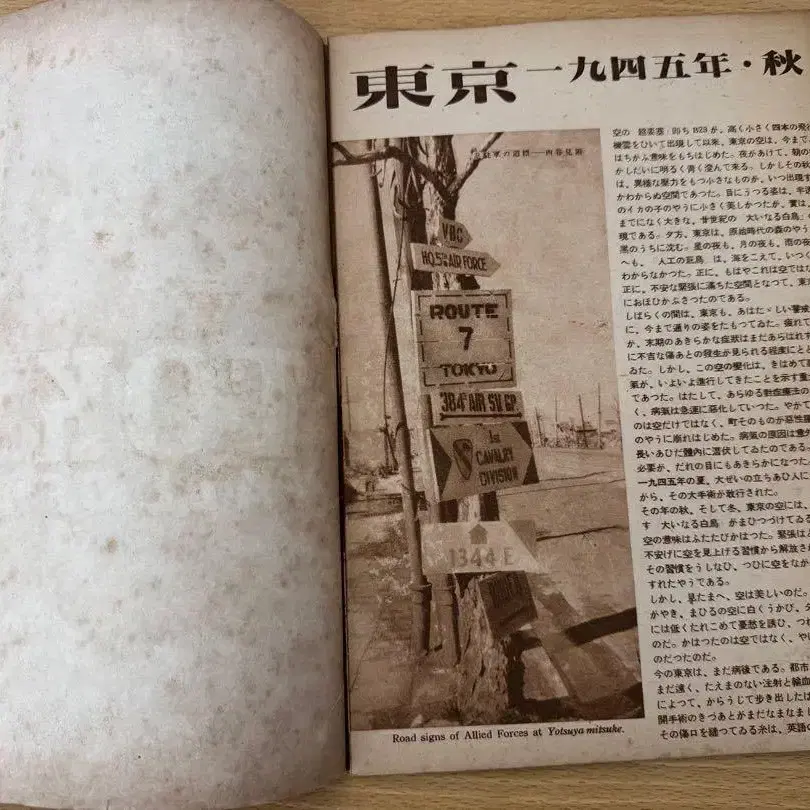 東京一九四五年・秋
駐軍の道標——四谷見附
VDC
HQ. 5TH AIR FORCE
ROUTE
7
TOKYO
384TH AIR SV GP
1ST
CAVALRY
DIVISION
1344 E
Road signs of Allied Forces at Yotsuya-mitsuke.
空の 超楽塞 卽ち B29 が、高く小さく四本の飛
機雲をひいて出現して以来、東京の空は、今まで
はちがふ意味をもちはじめた。夜があけて、朝の
かしだいに明るく青く澄んで来る。しかしその秋
は、異様な壓力をもつ小さなものが、いつ出現す
かわからぬ空間であつた。目にうつる姿は、半透
のイカの子のやうに小さく美しかつたが、實は、
までになく大きな、廿世紀の 大いなる白鳥
現である。夕方、東京は、原始時代の森のやう
黒のうちに沈む。星の夜も、月の夜も、雨の夜
へも、 人工の巨鳥 は、海をこえて、いつく
わからなかつた。正に、もはやこれは空では
正に、不安な緊張に滿ちた空間となつて、東
におほひかぶさつたのである。
しばらくの間は、東京も、あはたゞしい警戒
に、今まで通りの姿をたもつてゐた。疲れて
か、末期のあきらかな症狀はまだあらはれず
に不吉な傷あとの發生が見られる程度にとと
ゐた。しかし、この空の變化は、きはめて
氣が、いよいよ進行してきたことを示す
であつた。はたして、あらゆる對症療法の
く、病氣は急速に惡化していつた。やかて
のは空だけではなく、町そのものが惡性
のやうに崩れはじめた。病氣の原因は意外
長いあひだ體內に潛伏してゐたのである。
必要が、だれの目にもあきらかになつた。
一九四五年の夏、大ぜいの立ちあひ人に
から、その大手術が敢行された。
その年の秋、そして冬、東京の空には、
す 大いなる白鳥 がまひつづけてゐる
空の意味はふたたびかはつた。緊張と
不安げに空を見上げる習慣から解放さ
その習慣をうしなひ、つひに空をなか
すれたやうである。
しかし、見たまへ、空は美しいのだ。
がやき、まひるの空に白くうかび、夕
には低くたれこめて憂愁を誘ひ、つね
のだ。かはつたのは空ではなく、や
のだつたのだ。
今の東京は、まだ病後である。都市
まだ遠く、たえまのない注射と輸血
によつて、からうじて歩き出したは
開手術のきづあとがまだなまなまし
その傷口を縫つてゐる糸は、英語の